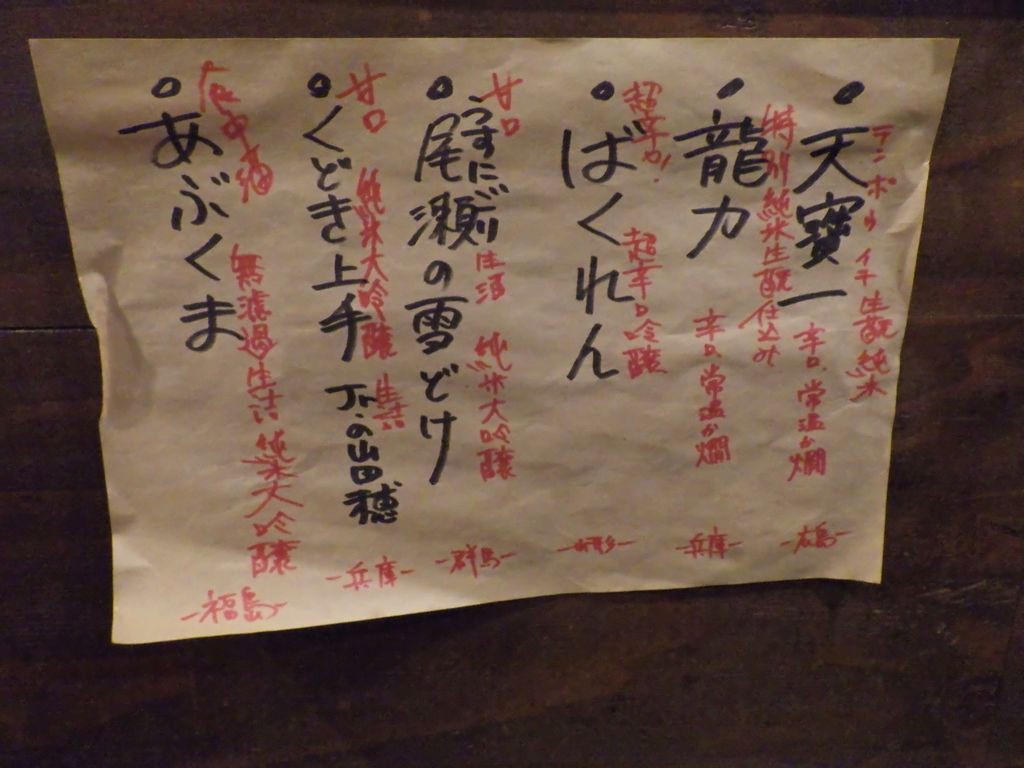 テンポウイチ 生酛純米
・天寶一
辛口、常温か燗
-広島-
特別純米生酛仕込み
・龍力
辛口、常温か燗
-兵庫-
超辛カ!
・ばくれん
超辛口吟醸
-山形-
甘口
うすにごり
生酒 純米大吟醸
・尾瀬の雪どけ
-群馬-
甘口 純米大吟醸 生詰
・くどき上手 Jr.の山田穂
-兵庫-
・あぶくま
無濾過生詰 純米大吟醸
-福島-